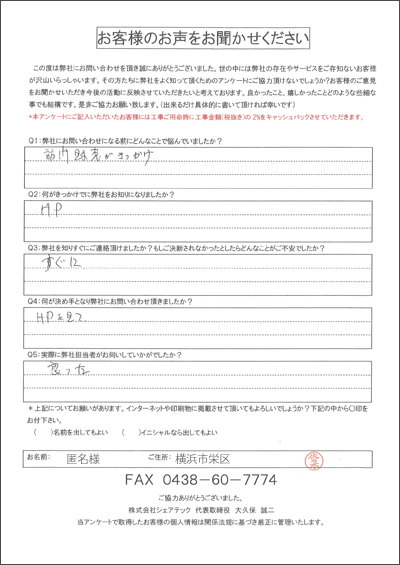 お客様のお声をお聞かせください
この度は弊社にお問い合わせを頂き誠にありがとうございました。世の中には弊社の存在やサービスをご存知ないお客様
が沢山いらっしゃいます。その方たちに弊社をよく知って頂くためのアンケートにご協力頂けないでしょうか?お客様のご意見
をお聞かせいただき今後の活動に反映させていただきたいと考えております。良かったこと、嬉しかったことどのような些細な
事でも結構です、是非ご協力お願い致します。(出来るだけ具体的に書いて頂ければ幸いです)
*本アンケートにご記入いただいたお客様には工事ご用命時に工事金額(税抜き)の2%をキャッシュバックさせていただきます。
Q1:弊社にお問い合わせになる前にどんなことで悩んでいましたか?
がきっかけ
Q2:何がきっかけでに弊社をお知りになりましたか?
HP
Q3:弊社を知りすぐにご連絡頂けましたか?もしご決断されなかったとしたらどんなことがご不安でしたか?
すぐに
Q4:何が決め手となり弊社にお問い合わせ頂きましたか?
HPを見て
Q5:実際に弊社担当者がお伺いしていかがでしたか?
*上記についてお願いがあります。インターネットや印刷物に掲載させて頂いてもよろしいでしょうか?下記の中から〇印を
お付下さい。
( )名前を出してもよい ( )イニシャルなら出してもよい
お名前: 匿名様 ご住所: 横浜市栄区
FAX 0438-60-7774
ご協力ありがとうございました。
株式会社シェアテック 代表取締役 大久保 誠二
当アンケートで取得したお客様の個人情報は関係法規に基づき厳正に管理いたします。